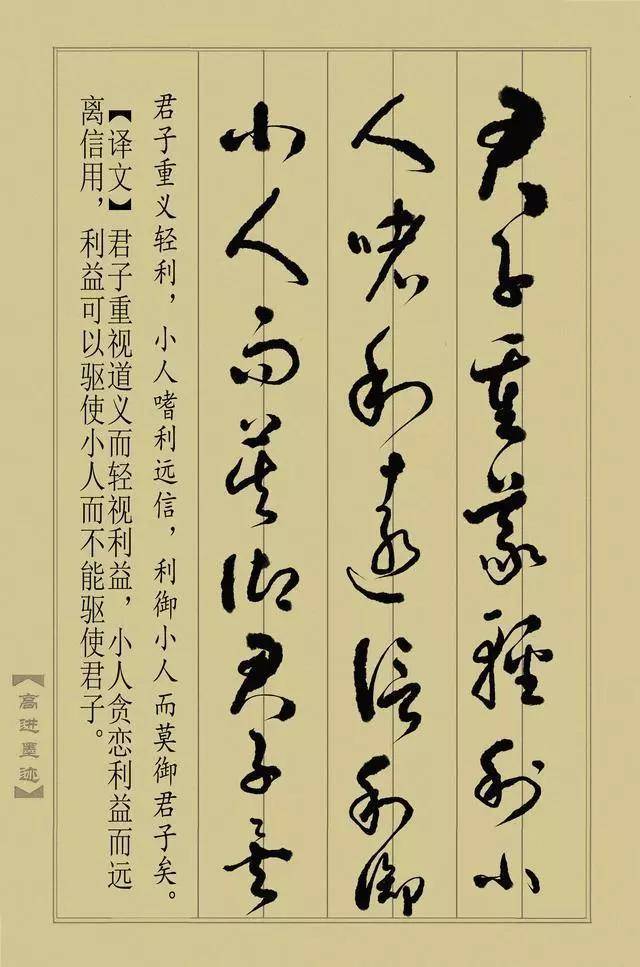 君子重義輕利小
人嗜利遠信利御
小人而莫御君子矣
君子重义轻利，小人嗜利远信，利御小人而莫御君子矣。
【译文】君子重视道义而轻视利益，小人贪恋利益而远
离信用，利益可以驱使小人而不能驱使君子。
【高进墨迹】